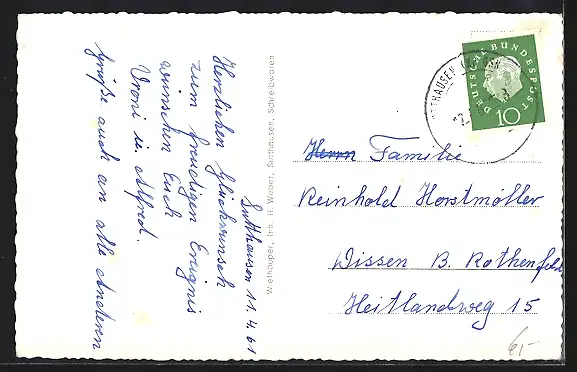 Sutthausen 11.4.61
Herzlichen Glückwunsch
zum freudigen Ereignis
wünschen Euch
Vroni u. Alfred.
Grüße auch an alle Anderen
Wiethauper, Inh. H. Weber, Sutthausen, Schreibwaren
DEUTSCHE BUNDESPOST
10
Herrn Familie
Reinhold Horstmöller
Dissen B. Rothenfelde
Heitlandweg 15
6,-